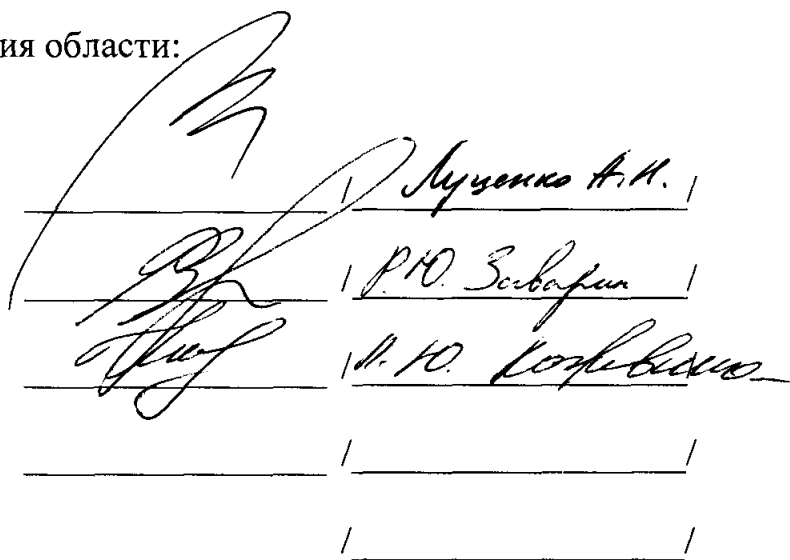 ия области:
/ Луценко А.Н. /
/ Р.Ю. Заварин /
/ Ю. /
/ /
/ /